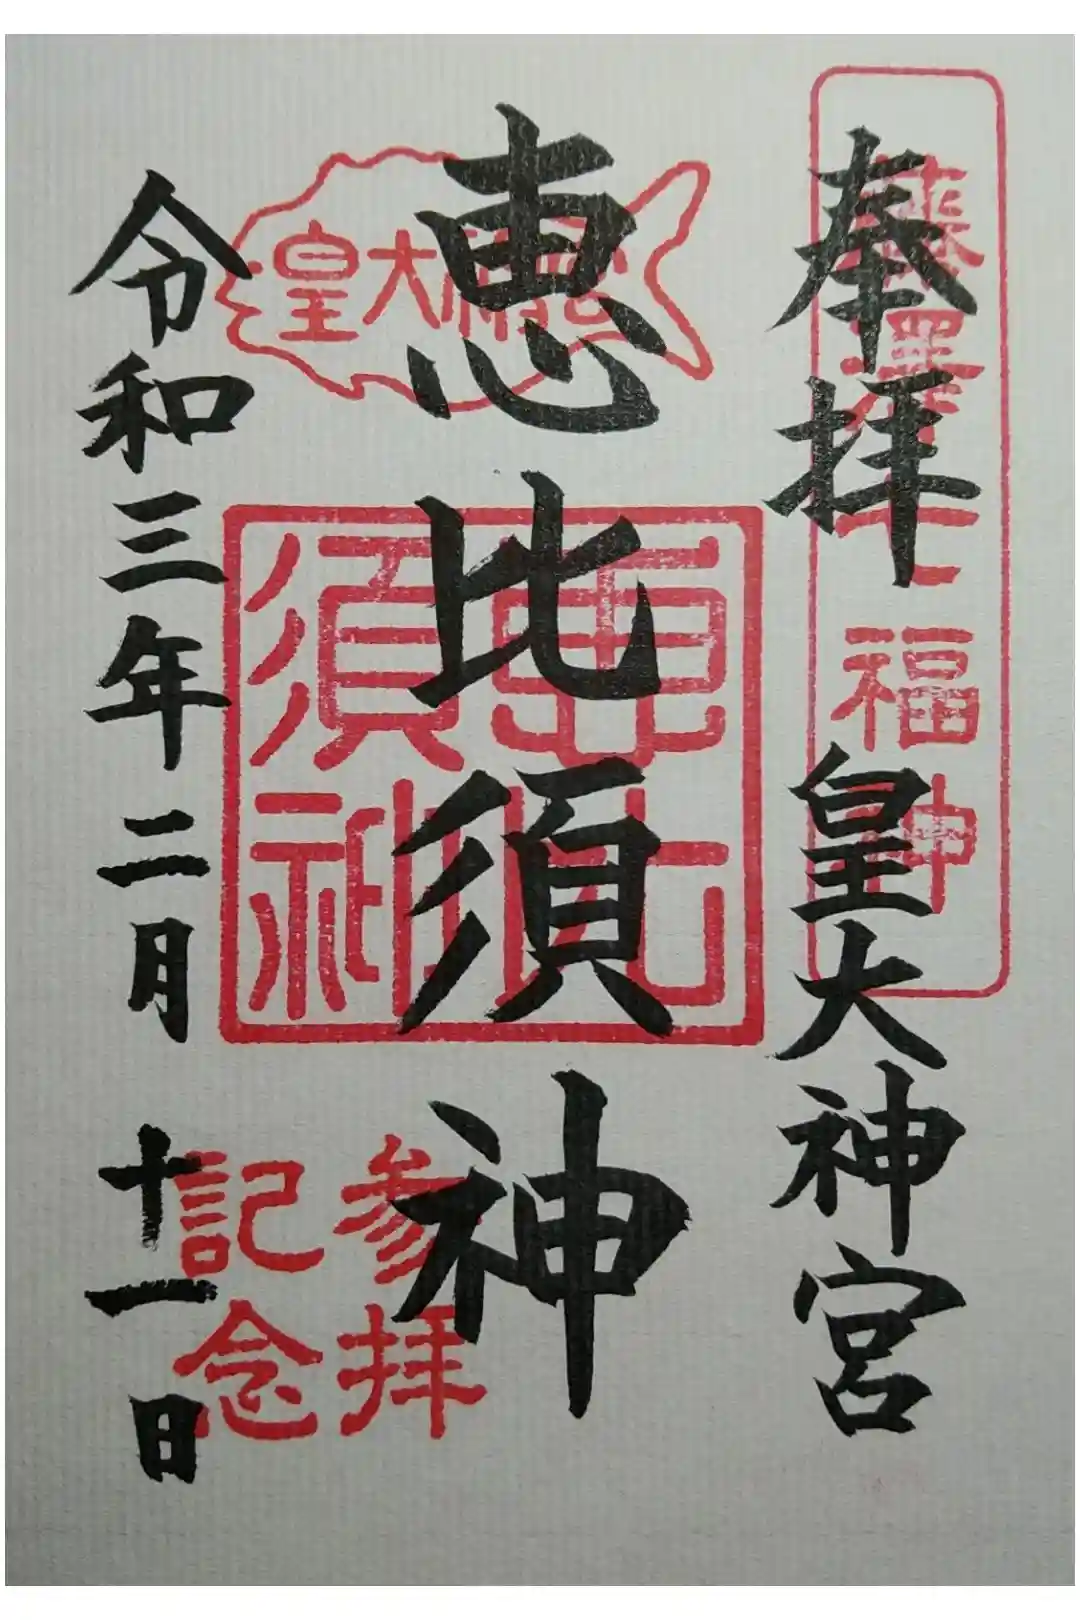 奉拝 皇大神宮
藤澤七福神
恵比須神
皇大神宮
恵比
須神
参拝
記念
令和三年二月十一日